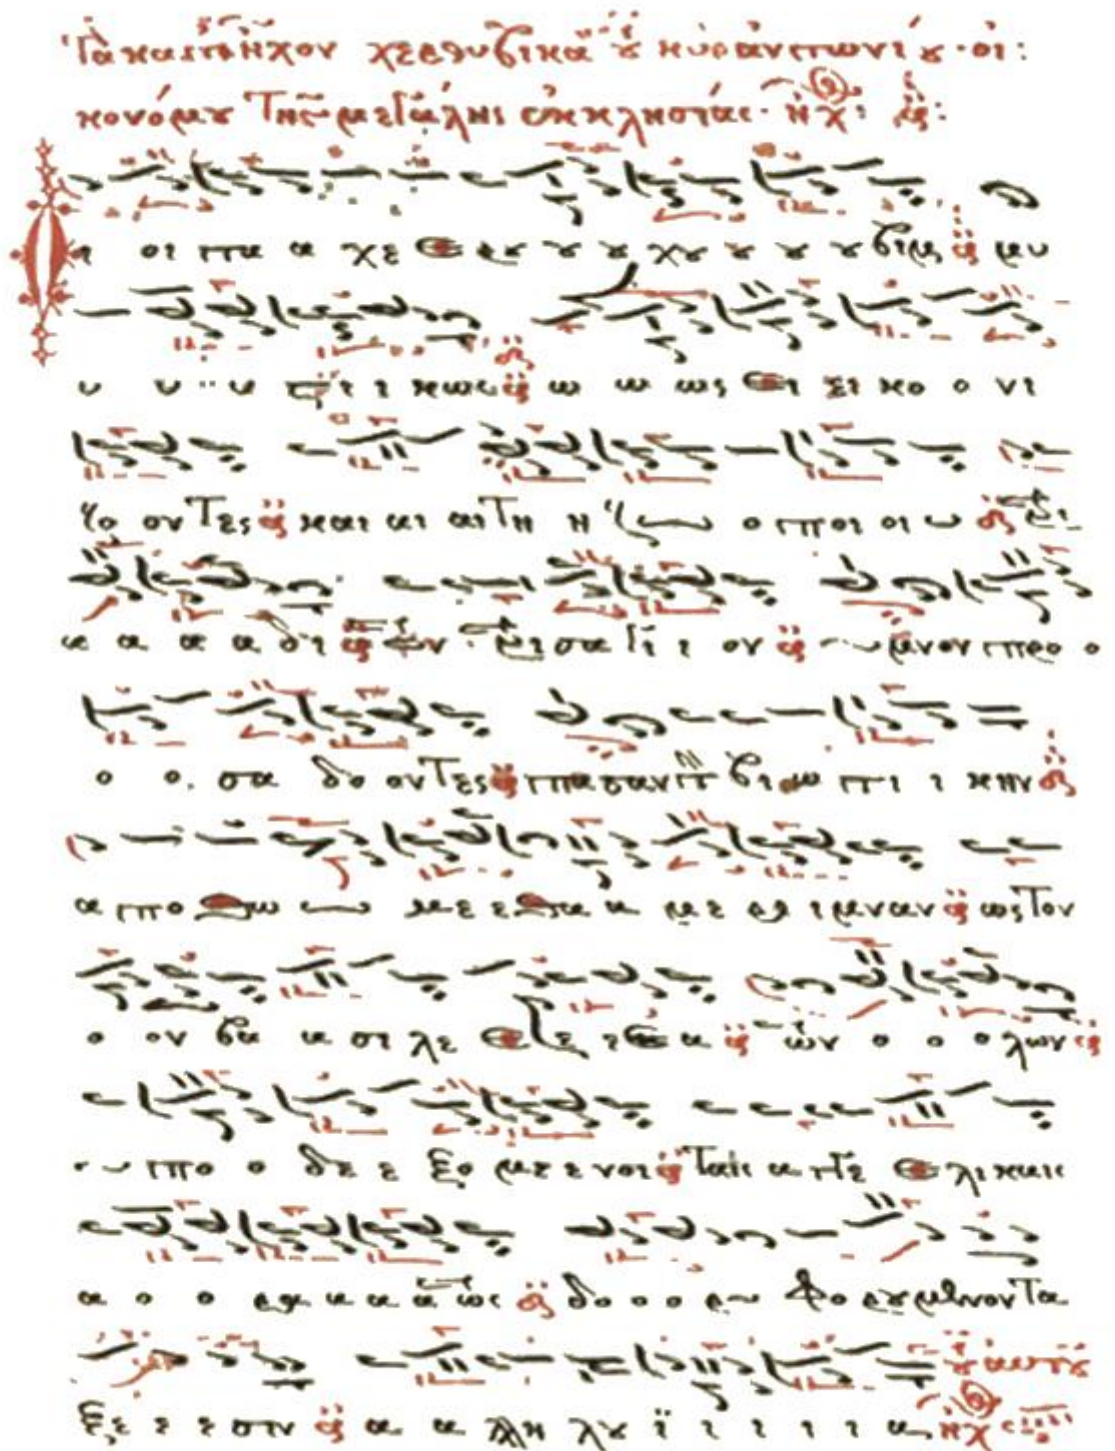 Τὰ κατ' ἦχον χερουβικὰ τοῦ κὺρ ἀντωνίου οἰ:
κονόμου τῆς μεγάλης ἐκκλησίας· ἦχ: α:
οι τα α χε ε ρου ου ου χου ου ου ου βιμ μυ
υ υ υ υ στι ι κως ω ω ως ει ει κο ο νι
ζο ον τες και αι αι τη η ζω ο ποι οι ω τρι
α α α α δι τον τρι σα γι ι ον υμνον προ ο
ο ο σα δο ον τες πασαν την βι ω τι ι κην
α πο θω ω με ε θα α με ρι ι μναν ως τον
ο ον βα α σι λε ε α των ο ο ο λων
υ πο ο δε ε ξο με ε νοι ταις α γγε ε λι καις
α ο ο ρα α α α τως δο ο ο ρυ φο ρου μενον τα
ξε ε ε ε σιν α α λλη λου ϊ ι ι ι ι α τοῦ αὐτοῦ ἦχ